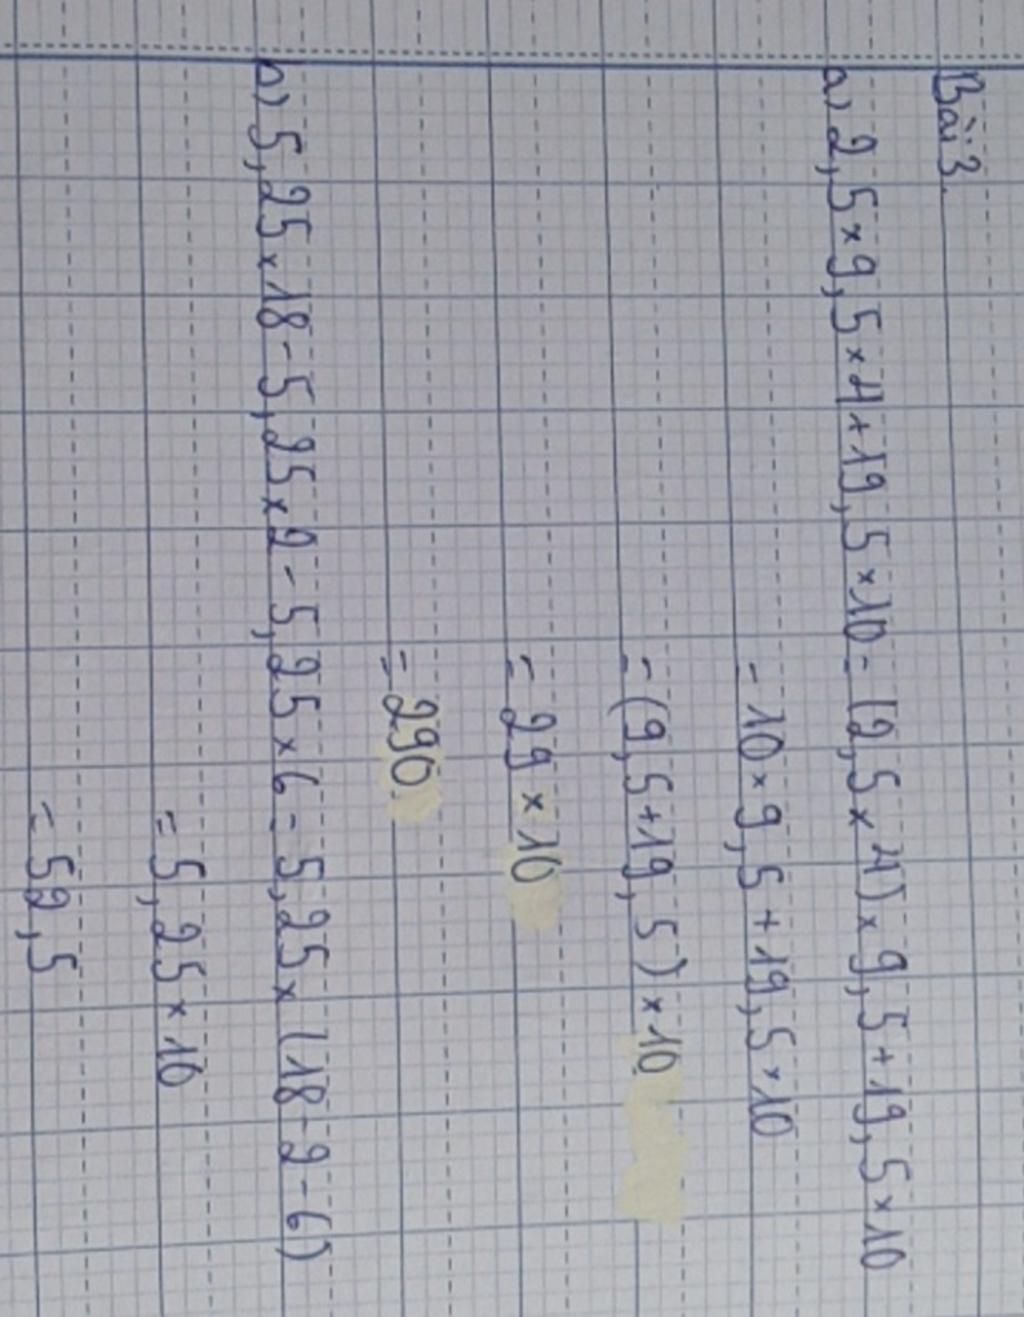 Bài 3.
a) 2,5 × 9,5 × 4 + 19,5 × 10 = (2,5 × 4) × 9,5 + 19,5 × 10
= 10 × 9,5 + 19,5 × 10
= (9,5 + 19,5) × 10
= 29 × 10
= 290
a) 5,25 × 18 - 5,25 × 2 - 5,25 × 6 = 5,25 × (18 - 2 - 6)
= 5,25 × 10
= 52,5